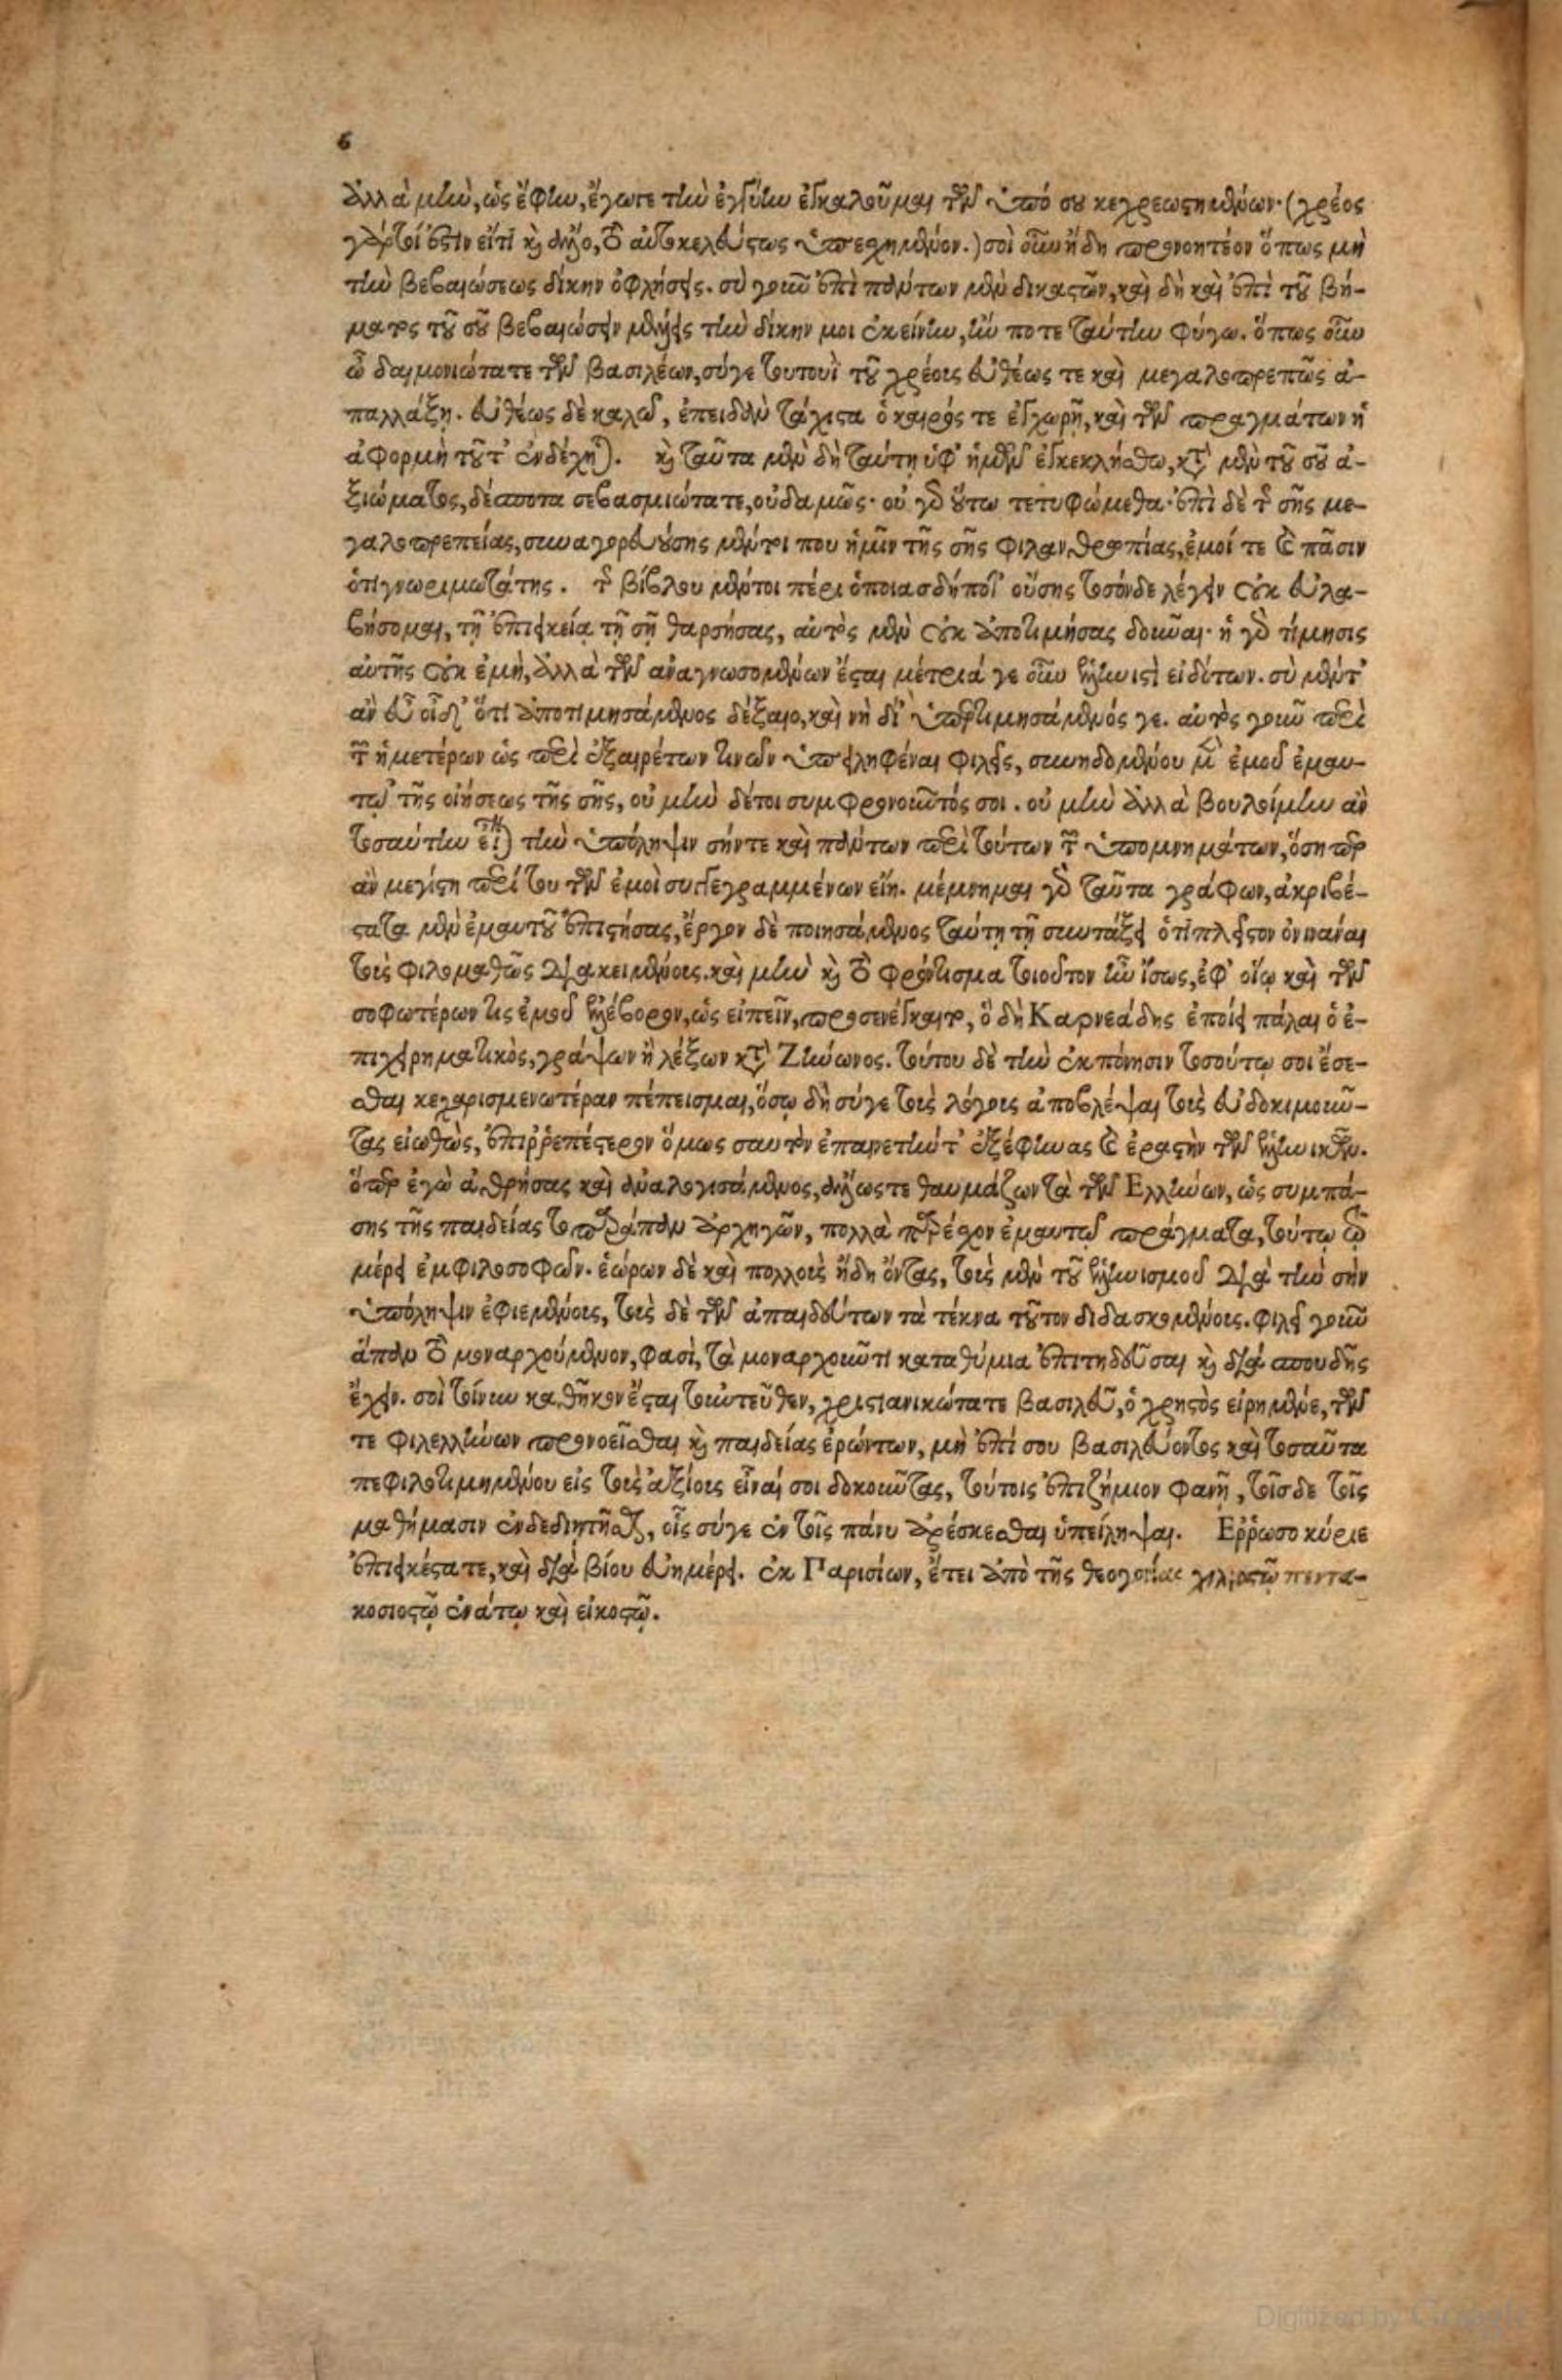 6
ἀλλὰ μὲν, ὡς ἔφην, ἔγωγε τὴν ἐγγύην ἐγκαλοῦμαι τῶν ὑπό σου κεχρεωστημένων· (χρέος
γάρ τοί ἐστιν εἴτι καὶ ἄλλο, τὸ αὐτοκελεύστως ὑπεσχημένον.) σοὶ οὖν ἤδη προνοητέον ὅπως μὴ
τὴν βεβαιώσεως δίκην ὀφλήσῃς. σὺ γοῦν ἐπὶ πάντων μὲν δικαστῶν, καὶ δὴ καὶ ἐπὶ τοῦ βή-
ματος τοῦ σοῦ βεβαιώσειν μέλλεις τὴν δίκην μοι ἐκείνην, ἤν ποτε ταύτην φύγω. ὅπως οὖν
ὦ δαιμονιώτατε τῶν βασιλέων, σύγε τουτουῒ τοῦ χρέους εὐθέως τε καὶ μεγαλοπρεπῶς ἀ-
παλλάξῃ. εὐθέως δὲ καλῶ, ἐπειδὰν τάχιστα ὁ καιρός τε ἐγχωρῇ, καὶ τῶν πραγμάτων ἡ
ἀφορμὴ τοῦτ' ἐνδέχηται. καὶ ταῦτα μὲν δὴ ταύτῃ ὑφ' ἡμῶν ἐγκεκλήσθω, κατὰ μὲν τοῦ σοῦ ἀ-
ξιώματος, δέσποτα σεβασμιώτατε, οὐδαμῶς· οὐ γὰρ οὕτω τετυφώμεθα· ἐπὶ δὲ τῆς σῆς με-
γαλοπρεπείας, συναγορευούσης μέντοι που ἡμῖν τῆς σῆς φιλανθρωπίας, ἐμοί τε καὶ πᾶσιν
ὅτι γνωριμωτάτης. τῆς βίβλου μέντοι πέρι ὁποιασδήποτ' οὔσης τοσόνδε λέγειν οὐκ εὐλα-
βήσομαι, τῇ ἐπιεικείᾳ τῇ σῇ θαρσήσας, αὐτὸς μὲν οὐκ ἀποτιμήσας δοῦναι· ἡ γὰρ τίμησις
αὐτῆς οὐκ ἐμὴ, ἀλλὰ τῶν ἀναγνωσομένων ἔσται μέτριά γε οὖν ἑλληνιστὶ εἰδότων. σὺ μέντ'
ἂν εὖ οἶδ' ὅτι ἀποτιμησάμενος δέξαιο, καὶ νὴ δί' ὑπερτιμησάμενός γε. αὐτὸς γοῦν περὶ
τῶν ἡμετέρων ὡς περὶ ἐξαιρέτων τινῶν ὑπειληφέναι φιλεῖς, συνηδομένου μὲν ἐμοῦ ἐμαυ-
τῷ τῆς οἰήσεως τῆς σῆς, οὐ μὲν δέτοι συμφρονοῦντός σοι. οὐ μὲν ἀλλὰ βουλοίμην ἂν
τοσαύτην εἶναι τὴν ὑπόληψιν σήντε καὶ πάντων περὶ τούτων τῶν ὑπομνημάτων, ὅση περ
ἂν μεγίστη περί του τῶν ἐμοὶ συγγεγραμμένων εἴη. μέμνημαι γὰρ ταῦτα γράφων, ἀκριβέ-
στατα μὲν ἐμαυτοῦ ἐπιστήσας, ἔργον δὲ ποιησάμενος ταύτῃ τῇ συντάξει ὅτι πλεῖστον ὀνινάναι
τοὺς φιλομαθῶς διακειμένους. καὶ μὲν καὶ τὸ φρόντισμα τοιοῦτον ἦν ἴσως, ἐφ' οἵῳ καὶ τῶν
σοφωτέρων τις ἐμοῦ ἑλλέβορον, ὡς εἰπεῖν, προσενέγκαιτο, ὃ δὴ Καρνεάδης ἐποίει πάλαι ὁ ἐ-
πιχειρηματικὸς, γράψων ἢ λέξων κατὰ Ζήνωνος. τούτου δὲ τὴν ἐκπόνησιν τοσούτῳ σοι ἔσε-
σθαι κεχαρισμενωτέραν πέπεισμαι, ὅσῳ δὴ σύγε τοὺς λόγους ἀποβλέψαι τοὺς εὐδοκιμοῦν-
τας εἰωθὼς, ἐπιῤῥεπέστερον ὅμως σαυτὸν ἐπαινετήντ' ἐξέφηνας καὶ ἐραστὴν τῶν ἑλληνικῶν.
ὅπερ ἐγὼ ἀθρήσας καὶ ἀναλογισάμενος, ἄλλωστε θαυμάζων τὰ τῶν Ελλήνων, ὡς συμπά-
σης τῆς παιδείας τοπαράπαν ἀρχηγῶν, πολλὰ παρέχον ἐμαυτῷ πράγματα, τούτῳ τῷ
μέρει ἐμφιλοσοφῶν. ἑώρων δὲ καὶ πολλοὺς ἤδη ὄντας, τοὺς μὲν τοῦ ἑλληνισμοῦ διὰ τὴν σὴν
ὑπόληψιν ἐφιεμένους, τοὺς δὲ τῶν ἀπαιδεύτων τὰ τέκνα τοῦτον διδασκομένους. φιλεῖ γοῦν
ἅπαν τὸ μοναρχούμενον, φασὶ, τὰ μοναρχοῦντι καταθύμια ἐπιτηδεῦσαι καὶ διὰ σπουδῆς
ἔχειν. σοὶ τοίνυν καθῆκον ἔσται τοὐντεῦθεν, χριστιανικώτατε βασιλεῦ, ὁ χρηστὸς εἰρημένε, τῶν
τε φιλελλήνων προνοεῖσθαι καὶ παιδείας ἐρώντων, μὴ ἐπί σου βασιλεύοντος καὶ τοσαῦτα
πεφιλοτιμημένου εἰς τοὺς ἀξίους εἶναί σοι δοκοῦντας, τούτοις ἐπιζήμιον φανῇ, τοῖσδε τοῖς
μαθήμασιν ἐνδεδιῃτῆσθαι, οἷς σύγε ἐν τοῖς πάνυ ἀρέσκεσθαι ὑπείληψαι. Ερῥωσο κύριε
ἐπιεικέστατε, καὶ διὰ βίου εὐημέρει. ἐκ Παρισίων, ἔτει ἀπὸ τῆς θεογονίας χιλιοστῷ πεντα-
κοσιοστῷ ἐνάτῳ καὶ εἰκοστῷ.
Digitized by Google